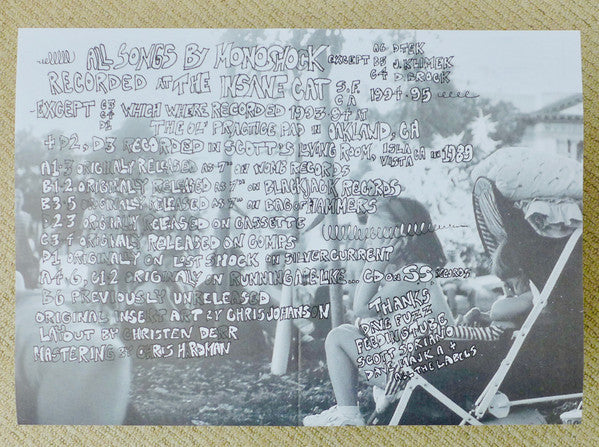 ALL SONGS BY MONOSHOCK EXCEPT A6 DTEK
B5 J. KLIMEK
C4 D. BROCK
RECORDED AT THE INSANE CAT S.F. CA 1994-95
EXCEPT C3 C4 D1 WHICH WHERE RECORDED 1993-94 AT
THE OL' PRACTICE PAD IN OAKLAND, CA
+ D2, D3 RECORDED IN SCOTT'S LIVING ROOM, ISLA VISTA CA IN 1989
A1-3 ORIGINALY RELEASED AS 7" ON WOMB RECORDS
B1-2 ORIGINALLY RELEASED AS 7" ON BLACKJACK RECORDS
B3-5 ORIGINALLY RELEASED AS 7" ON BAG OF HAMMERS
D2,3 ORIGINALLY RELEASED ON CASSETTE
C3-4 ORIGINALLY RELEASED ON COMPS
D1 ORIGINALLY ON LAST SHOCK ON SILVERCURRENT
A4-6, C1,2 ORIGINALLY ON RUNNING APE LIKE... CD ON S.S. RECORDS
B6 PREVIOUSLY UNRELEASED
ORIGINAL INSERT ART BY CHRIS JOHANSON
LAYOUT BY CHRISTEN DERR
MASTERING BY CHRIS HARDMAN
THANKS
DAVE FUZZ
FEEDING TUBE
SCOTT SORIANO
+ THE LABELS